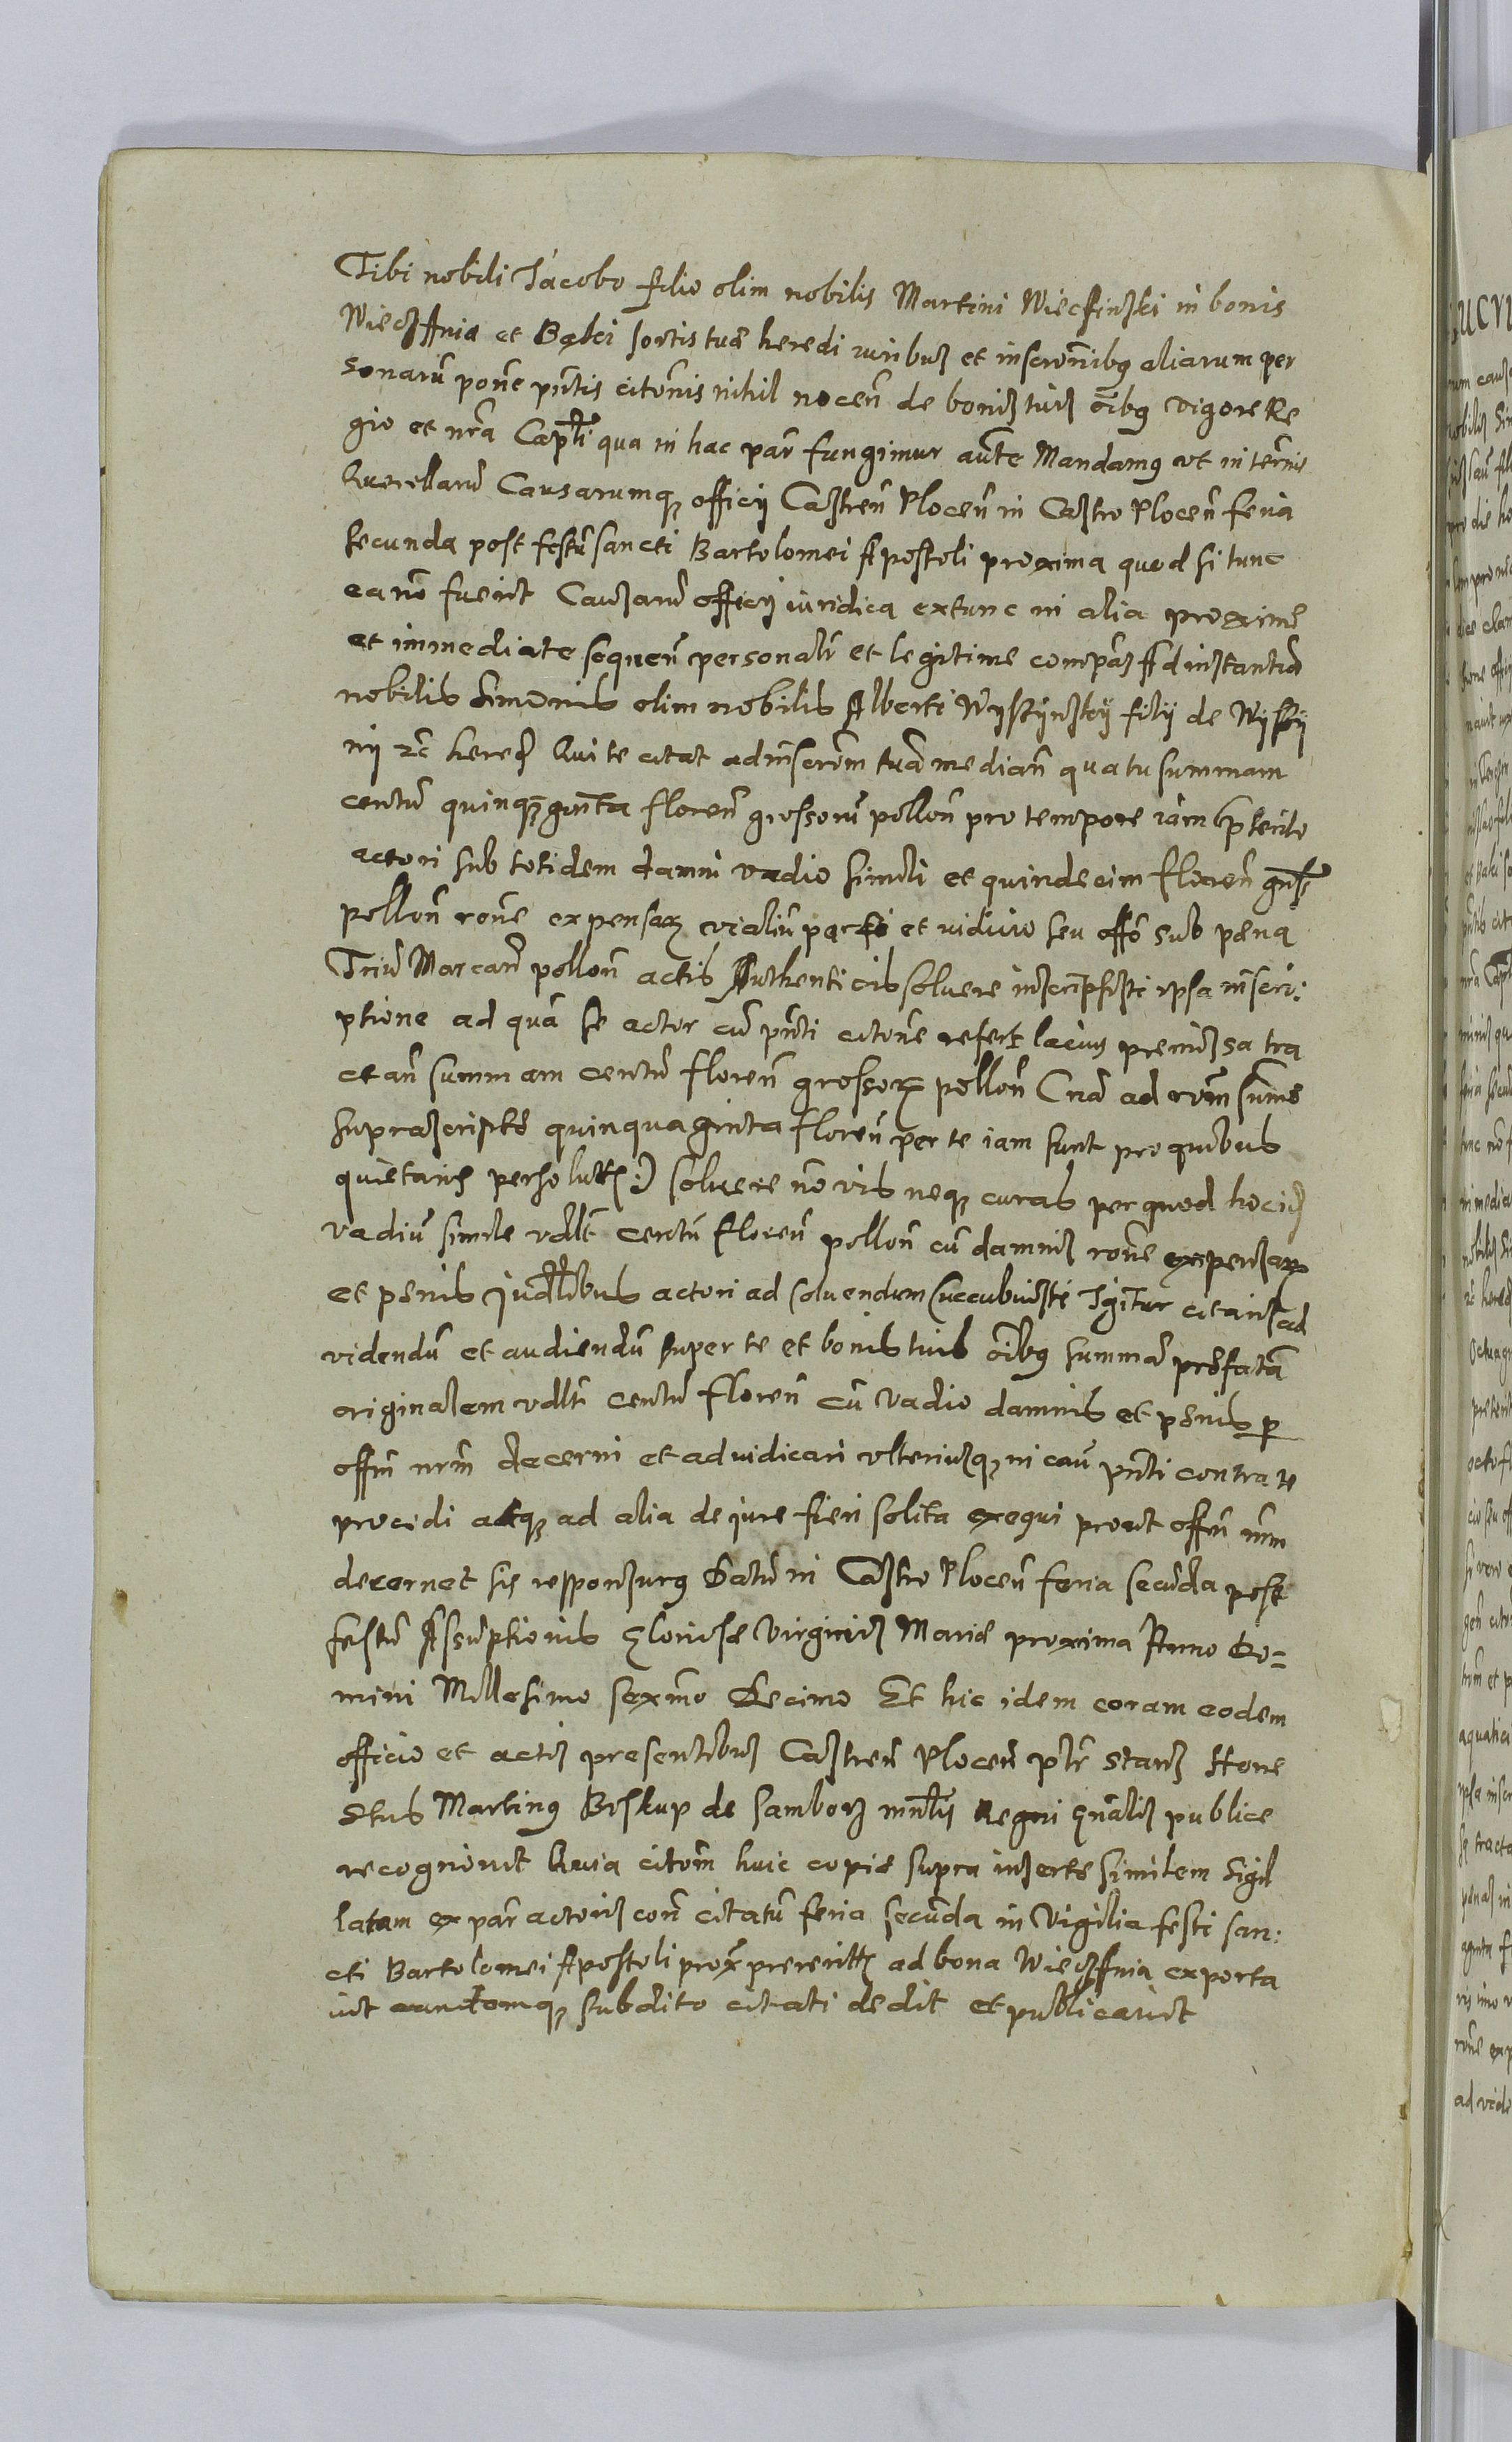 Tibi nobili Jacobo filio olim nobilis Martini Wiecfinski in bonis
Wieczfnia et Bąbki sortis tuæ heredi iuribus et inscrōnibq aliarum per
sonarū pōne pn̄tis citōnis nihil nocen̄ de bonis tuis oībq vigore Re
gio et nr̄a Cap̄tli qua in hac par̄ fungimur aūte Mandamq vt in termis
Querellarū Causarumq officij Castren̄ Plocen̄ in Castro Plocen̄ feria
secunda post festū sancti Bartolomei Apostoli proxima quod si tunc
ea nō fuerit Causarū officij iuridica extunc in alia proximē
et immediate sequen̄ personalr̄ et legitime compās Ad instantiā
nobilis Simonis olim nobilis Alberti Wyskijnskij filij de Wyskij
nij &c hered Qui te citat ad inscrōm tuā median̄ qua tu summam
centū quinquaginta floren̄ grossorū pollon̄ pro tempore iam pterito
actori sub totidem damni vadio simili et quindecim floren̄
pollon̄ rōne expensar̄ vialiū pacto et viduio seu offo sub pæna
Triū Marcar̄ pollon̄ actis Authenticis soluere inscripsisti ipsa inscri:
ptione ad quā se actor cū pn̄ti citōne refert lacius premissa tra
ctan̄ summam centū floren̄ grossor̄ pollon̄ (nā ad rōm sūmæ
suprascriptæ quinquaginta floren̄ per te iam sunt pro quibus
quietaris persolutt:) soluere nō vis neq curas per quod hoc id
vadiū simile vdlt centū floren̄ pollon̄ cū damnis rōne expensar̄
et pænis judlibus actori ad soluendum succubuisti Igitur citaris ad
videndū et audiendū super te et bonis tuis oībq summā præfatā
originalem vdlt centū floren̄ cū vadio damnis et pænis p
offm̄ nrm̄ decerni et adiudicari vlteriusq in cau pn̄ti contra te
procidi atq ad alia de jure fieri solita exequi prout offm̄ nrm̄
decernet sis responsurq Datū in Castro Plocen̄ feria secūda post
festū Assūptionis Gloriosæ Virginis Mariæ proxima Anno Do=
mini Millesimo sexmo Decimo Et hic idem coram eodem
officio et actis presentibus Castren̄ Plocen̄ ptr̄ stans Hone
stus Martinq Biskup de Samborz mn̄tlis Regni gn̄alis publice
recognouit Quia citōm huic copiæ supra insertæ similem sigil
latam ex par̄ actoris con̄ citatū feria secūda in Vigilia festi san:
cti Bartolomei Apostoli prox̄ preteritti ad bona Wieczfnia exporta
uit eandemq subdito citati dedit et publicauit